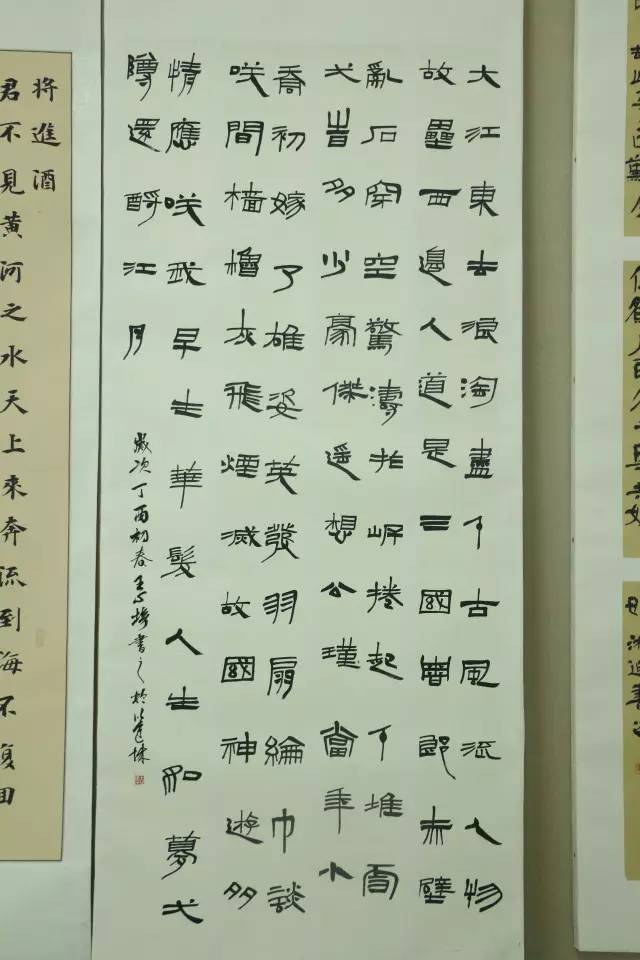 大江東去浪淘盡千古風流人物
故壘西邊人道是三國周郎赤壁
亂石穿空驚濤拍岸捲起千堆雪
弌旹多少豪傑遥想公瑾當年小
喬初嫁了雄姿英發羽扇綸巾談
咲間檣櫓灰飛煙滅故國神遊多
情應咲我早生華髮人生如夢弌
還酹江月
歲次丁酉初春書之於
將進酒
君不見黃河之水天上來奔流到海不復回